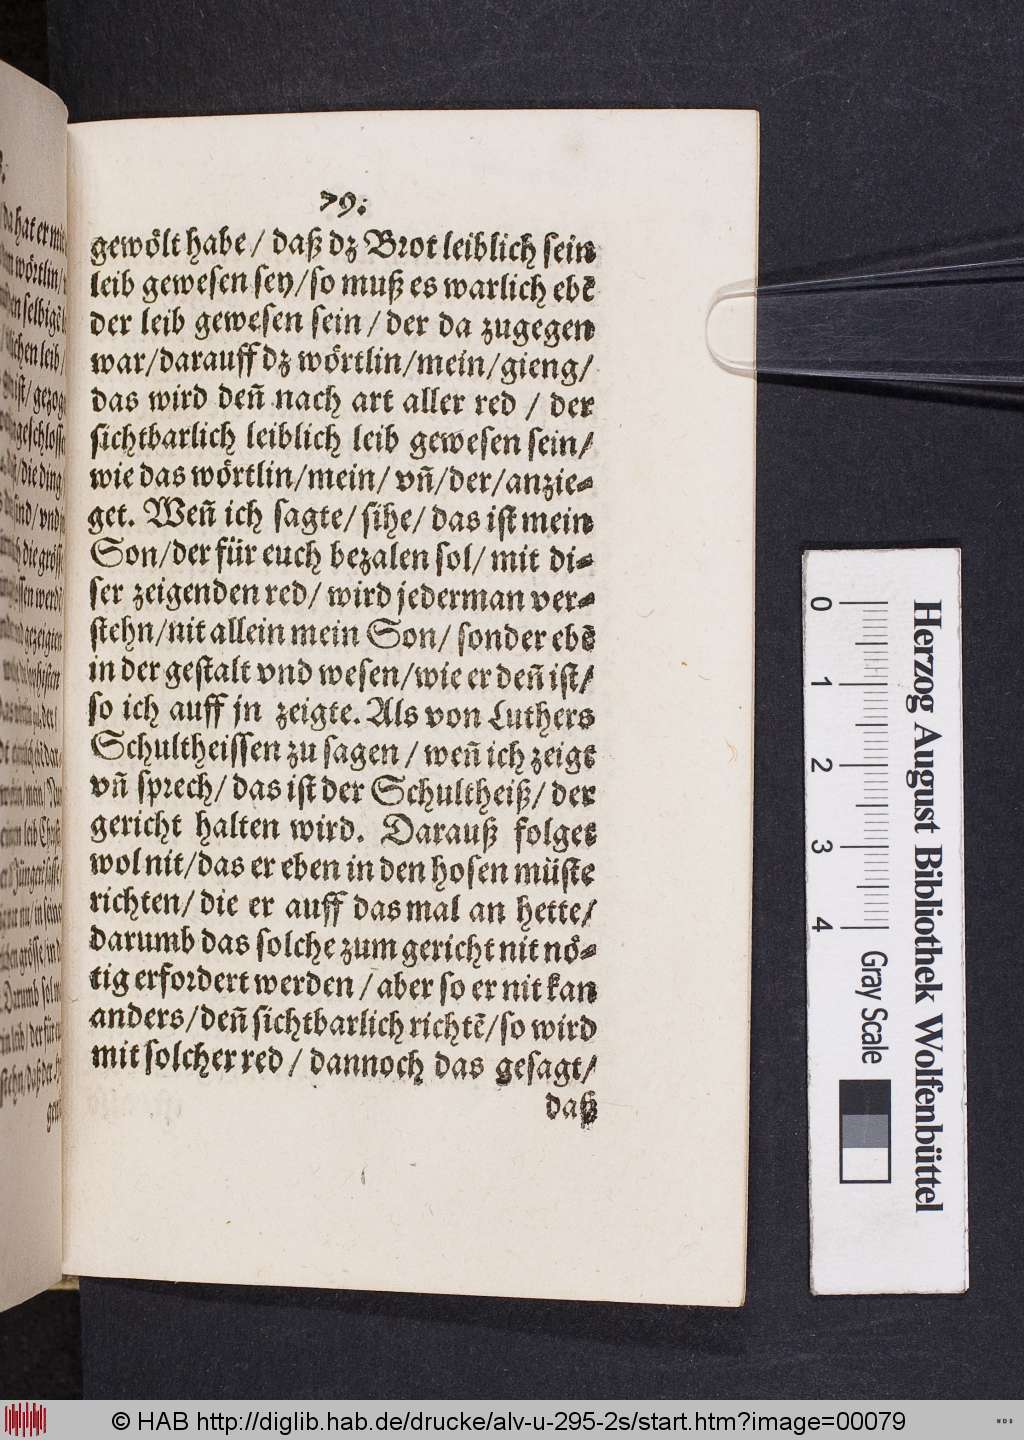 79:
gewoͤlt habe / daß dz Brot leiblich sein
leib gewesen sey/so muß es warlich ebē
der leib gewesen sein / der da zugegen
war/darauff dz woͤrtlin/mein/gieng/
das wird deñ nach art aller red / der
sichtbarlich leiblich leib gewesen sein/
wie das woͤrtlin/mein/ vñ/der/anzie-
get. Weñ ich sagte/ sihe/ das ist mein
Son/der für euch bezalen sol/ mit di-
ser zeigenden red/ wird jederman ver-
stehn/nit allein mein Son/ sonder ebē
in der gestalt vnd wesen/wie er deñ ist/
so ich auff jn zeigte. Als von Luthers
Schultheissen zu sagen / weñ ich zeigt
vñ sprech/ das ist der Schultheiß/ der
gericht halten wird. Darauß folget
wol nit/das er eben in den hosen müste
richten/ die er auff das mal an hette/
darumb das solche zum gericht nit noͤ-
tig erfordert werden / aber so er nit kan
anders/deñ sichtbarlich richtē/so wird
mit solcher red / dannoch das gesagt/
daß
da hat er
woͤrtlin/
selbigē
chen leib/
ist/ gezog
/die ding
sind/ vnd
die groͤst
werdē
gezeigten
Herzog August Bibliothek Wolfenbüttel
0 1 2 3 4
Gray Scale
© HAB http://diglib.hab.de/drucke/alv-u-295-2s/start.htm?image=00079